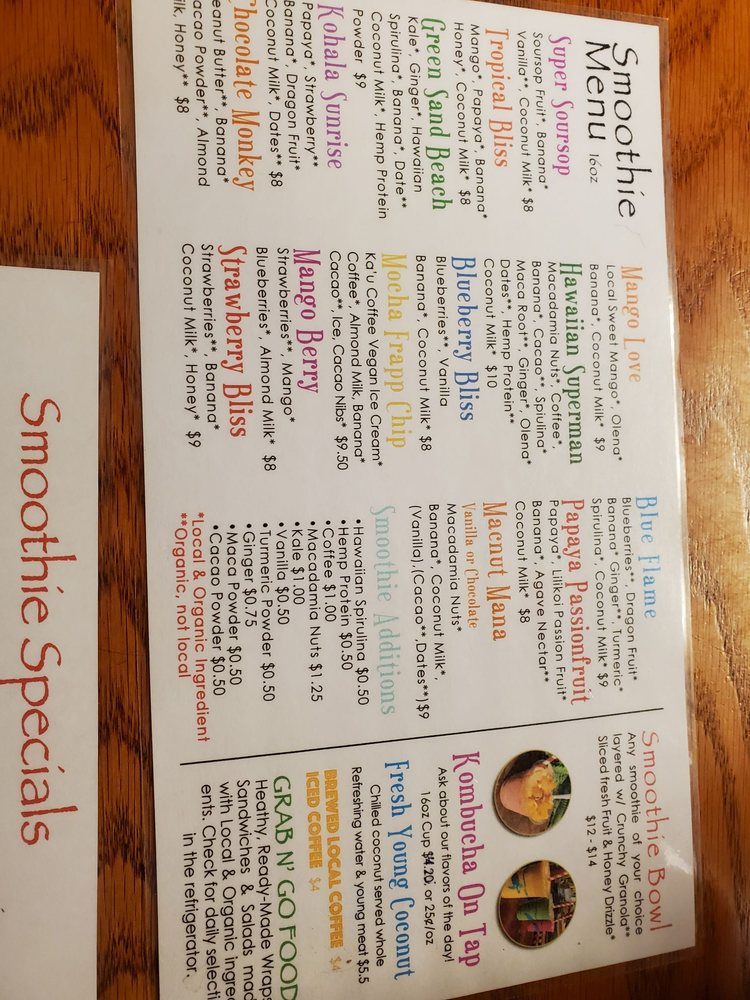 Smoothie
Menu 16oz
Super Soursop
Soursop Fruit*, Banana*
Vanilla**, Coconut Milk* $8
Tropical Bliss
Mango*, Papaya*, Banana*
Honey*, Coconut Milk* $8
Green Sand Beach
Kale*, Ginger*, Hawaiian
Spirulina*, Banana*, Date**
Coconut Milk*, Hemp Protein
Powder $9
Kohala Sunrise
Papaya*, Strawberry**
Banana*, Dragon Fruit*
Coconut Milk*, Dates** $8
Chocolate Monkey
eanut Butter**, Banana*
acao Powder**, Almond
ilk, Honey** $8
Mango Love
Local Sweet Mango*, Olena*
Banana*, Coconut Milk* $9
Hawaiian Superman
Macadamia Nuts*, Coffee*,
Banana*, Cacao**, Spiulina*
Maca Root**, Ginger*, Olena*
Dates**, Hemp Protein**
Coconut Milk* $10
Blueberry Bliss
Blueberries**, Vanilla
Banana*, Coconut Milk* $8
Mocha Frapp Chip
Ka'u Coffee Vegan Ice Cream*
Coffee*, Almond Milk, Banana*
Cacao**, Ice, Cacao Nibs* $9.50
Mango Berry
Strawberries**, Mango*
Blueberries*, Almond Milk* $8
Strawberry Bliss
Strawberries**, Banana*
Coconut Milk*, Honey* $9
Blue Flame
Blueberries**, Dragon Fruit*
Banana* Ginger**, Turmeric*
Spirulina*, Coconut Milk* $9
Papaya Passionfruit
Papaya*, Lilikoi Passion Fruit*
Banana*, Agave Nectar**
Coconut Milk* $8
Macnut Mana
Vanilla or Chocolate
Macadamia Nuts*
Banana*, Coconut Milk*,
(Vanilla),(Cacao**,Dates**)$9
Smoothie Additions
•Hawaiian Spirulina $0.50
•Hemp Protein $0.50
•Coffee $1.00
•Macadamia Nuts $1.25
•Kale $1.00
•Vanilla $0.50
•Turmeric Powder $0.50
•Ginger $0.75
•Maca Powder $0.50
•Cacao Powder $0.50
*Local & Organic Ingredient
**Organic, not local
Smoothie Bowl
Any smoothie of your choice
layered w/ Crunchy Granola**
Sliced fresh Fruit & Honey Drizzle*
$12 - $14
Kombucha On Tap
Ask about our flavors of the day!
16oz Cup $4.20, or 25¢/oz
Fresh Young Coconut
Chilled coconut served whole
Refreshing water & young meat $5.5
BREWED LOCAL COFFEE $4
ICED COFFEE $4
GRAB N' GO FOOD
Heathy, Ready-Made Wraps
Sandwiches & Salads mad
with Local & Organic ingre
ents. Check for daily selecti
in the refrigerator.
Smoothie Specials